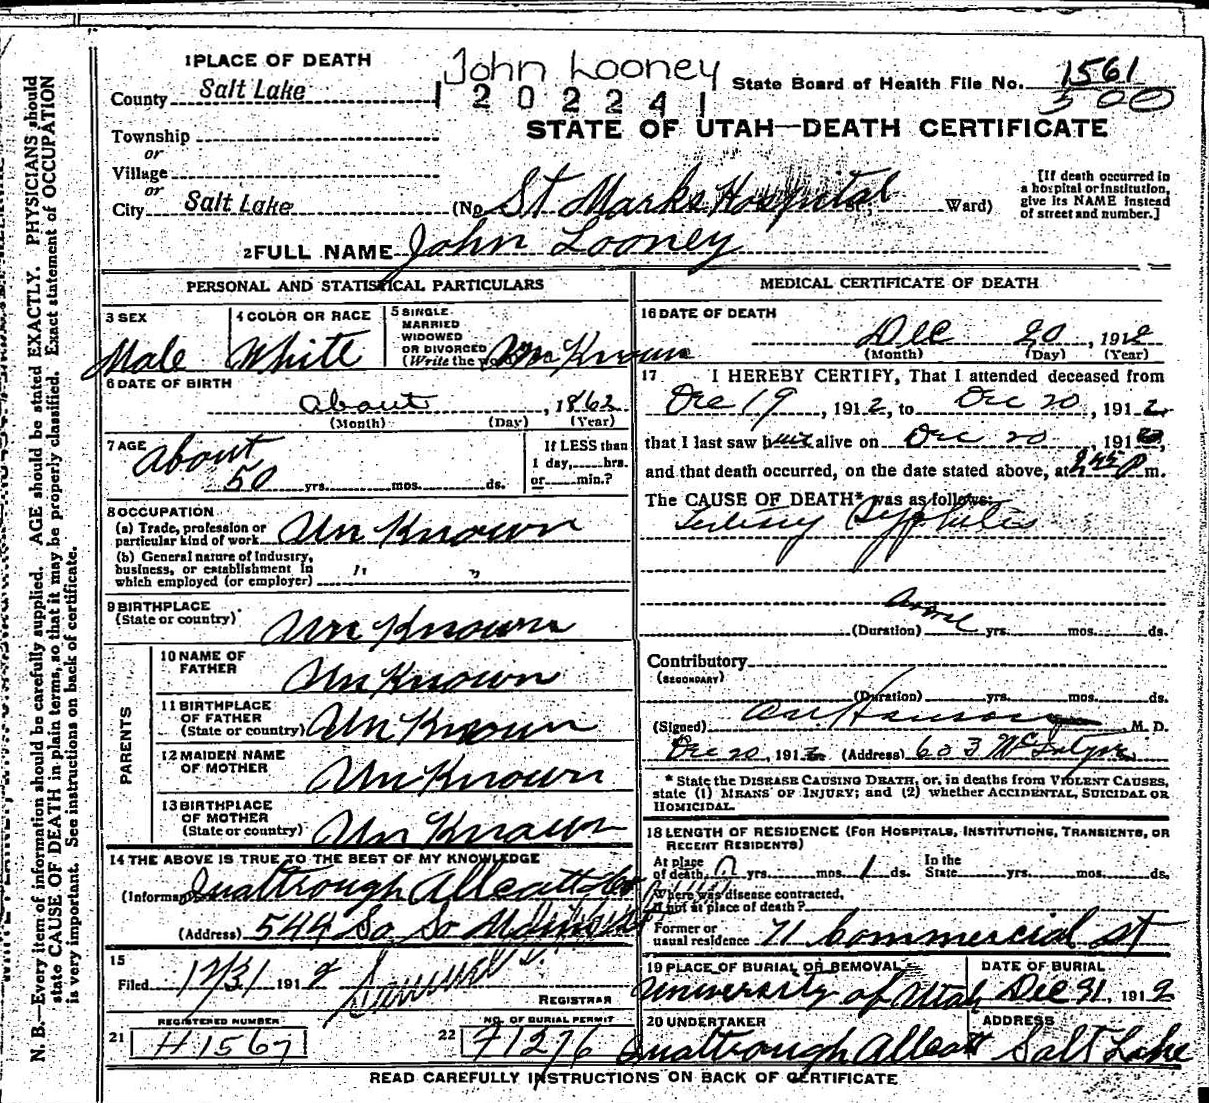 1 PLACE OF DEATH
John Looney
State Board of Health File No. 1561
County Salt Lake
1 202241
300
Township
STATE OF UTAH—DEATH CERTIFICATE
or
Village
or
City Salt Lake (No. St Marks Hospital St; Ward)
[If death occurred in
a hospital or institution,
give its NAME instead
of street and number.]
2 FULL NAME John Looney
PERSONAL AND STATISTICAL PARTICULARS
3 SEX
Male
4 COLOR OR RACE
White
5 SINGLE
MARRIED
WIDOWED
OR DIVORCED
(Write the word) UnKnown
6 DATE OF BIRTH
about, 1862
(Month) (Day) (Year)
7 AGE
About
50 yrs. mos. ds.
If LESS than
1 day, hrs.
or min.?
8 OCCUPATION
(a) Trade, profession or
particular kind of work UnKnown
(b) General nature of Industry,
business, or establishment in
which employed (or employer) " "
9 BIRTHPLACE
(State or country) UnKnown
PARENTS
10 NAME OF
FATHER UnKnown
11 BIRTHPLACE
OF FATHER
(State or country) UnKnown
12 MAIDEN NAME
OF MOTHER UnKnown
13 BIRTHPLACE
OF MOTHER
(State or country) UnKnown
14 THE ABOVE IS TRUE TO THE BEST OF MY KNOWLEDGE
(Informant) Qualtrough Allcott
(Address) 544 So
15
Filed 12/31 1912
REGISTRAR
REGISTERED NUMBER
21 H1567
NO. OF BURIAL PERMIT
22 71276
MEDICAL CERTIFICATE OF DEATH
16 DATE OF DEATH
Dec 20, 1912
(Month) (Day) (Year)
17 I HEREBY CERTIFY, That I attended deceased from
Dec 19, 1912, to Dec 20, 1912
that I last saw him alive on Dec 20, 191
and that death occurred, on the date stated above, at 245 P m.
The CAUSE OF DEATH* was as follows:
Tertiary Syphilis
(Duration) yrs. mos. ds.
Contributory
(SECONDARY)
(Duration) yrs. mos. ds.
(Signed) M. D.
Dec 20, 1912 (Address) 603 McIntyre
* State the DISEASE CAUSING DEATH, or, in deaths from VIOLENT CAUSES,
state (1) MEANS OF INJURY; and (2) whether ACCIDENTAL, SUICIDAL OR
HOMICIDAL.
18 LENGTH OF RESIDENCE (FOR HOSPITALS, INSTITUTIONS, TRANSIENTS, OR
RECENT RESIDENTS)
At place
of death 0 yrs. mos. 1 ds.
In the
State yrs. mos. ds.
Where was disease contracted,
if not at place of death?
Former or
usual residence 71 Commercial St
19 PLACE OF BURIAL OR REMOVAL
University of Utah
DATE OF BURIAL
Dec 31, 1912
20 UNDERTAKER
Qualtrough Allcott
ADDRESS
Salt Lake
READ CAREFULLY INSTRUCTIONS ON BACK OF CERTIFICATE
N. B.—Every item of information should be carefully supplied. AGE should be stated EXACTLY. PHYSICIANS should
state CAUSE OF DEATH in plain terms, so that it may be properly classified. Exact statement of OCCUPATION
is very important. See instructions on back of certificate.